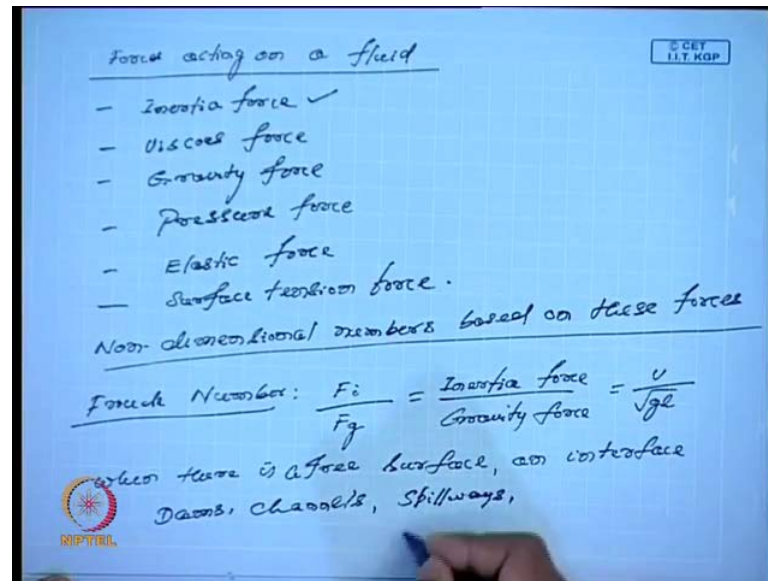 Forces acting on a fluid
© CET
I.I.T. KGP
- Inertia force ✓
- Viscous force
- Gravity force
- Pressure force
- Elastic force
- Surface tension force.
Non-dimensional numbers based on these forces
Froude Number: Fi/Fg = Inertia force/Gravity force = U/√gl
when there is a free surface, an interface
Dams, channels, Spillways,
NPTEL